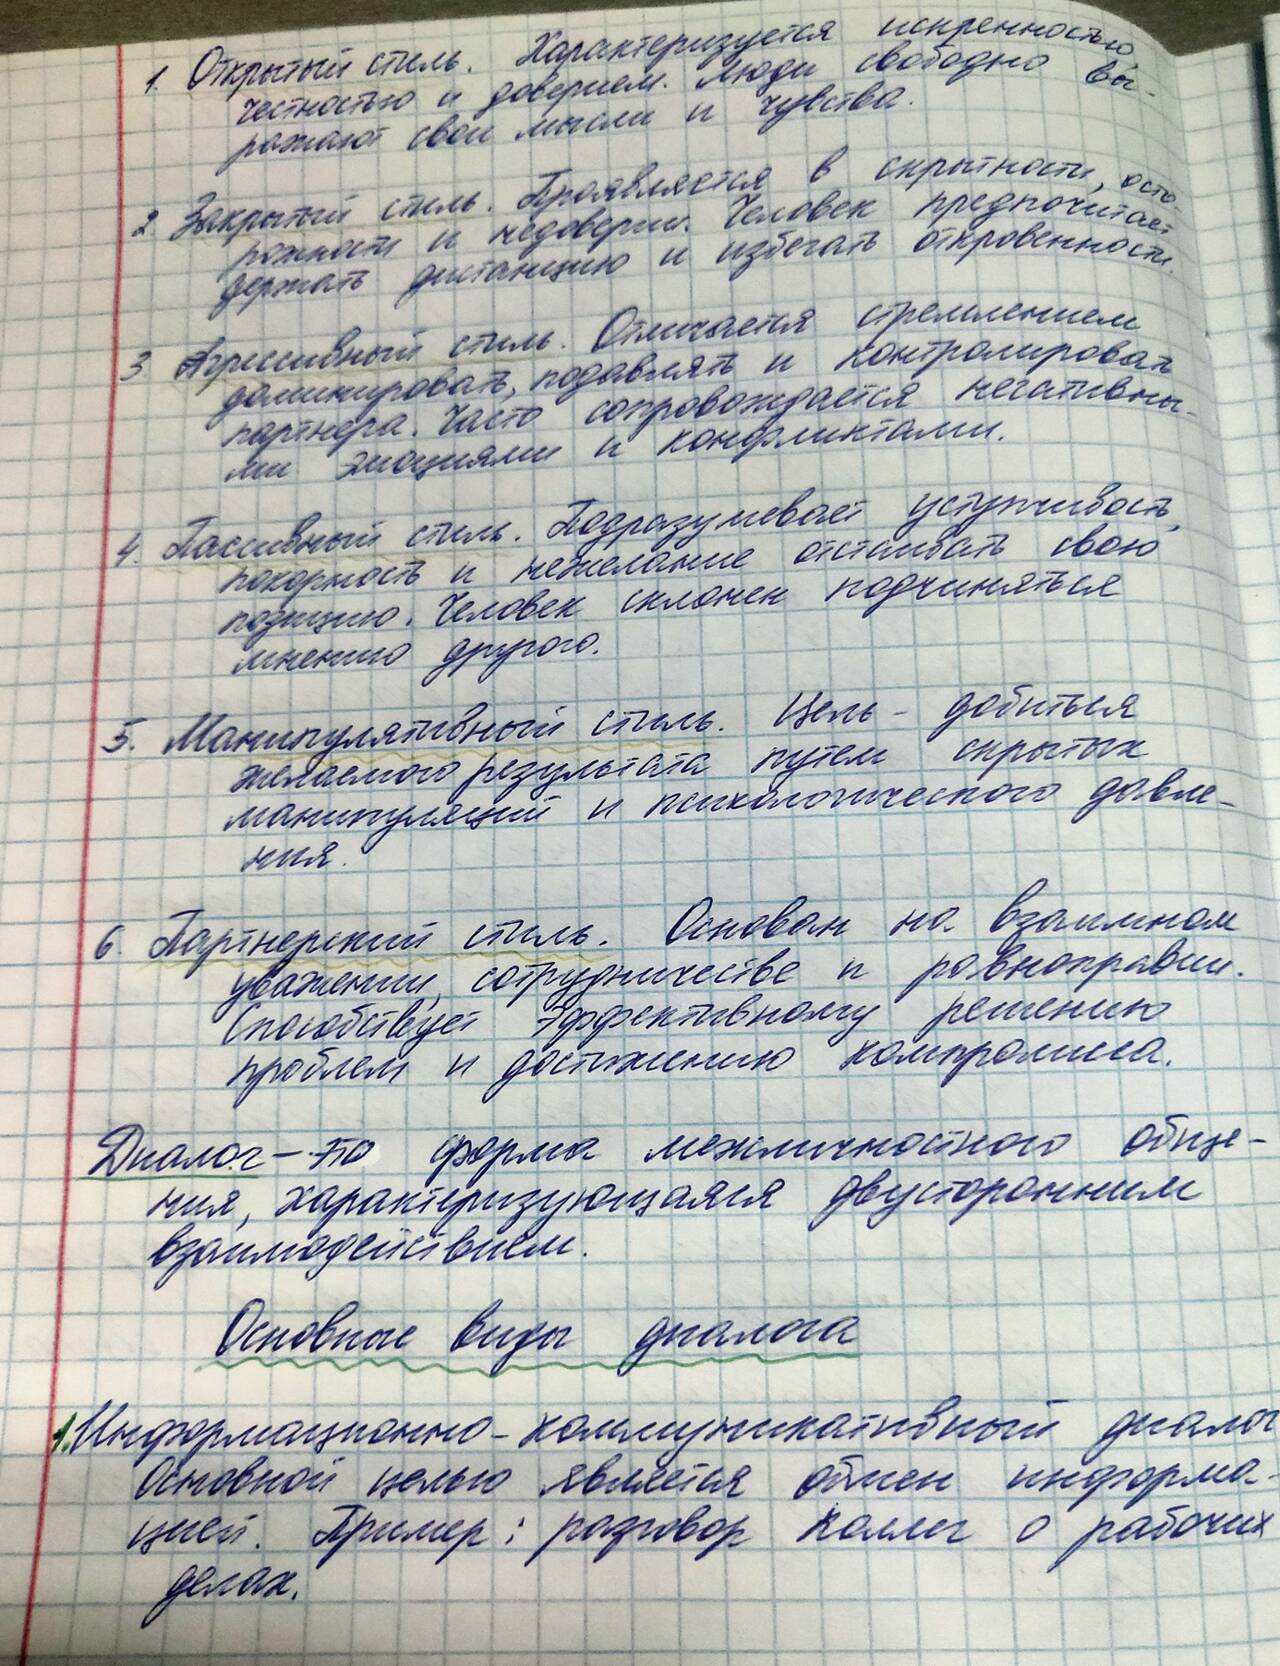 1. Открытый стиль. Характеризуется искренностью,
честностью и доверием. Люди свободно вы-
ражают свои мысли и чувства.
2. Закрытый стиль. Проявляется в скрытности, осто-
рожности и недоверии. Человек предпочитает
держать дистанцию и избегать откровенности.
3 Агрессивный стиль. Отличается стремлением
доминировать, подавлять и контролировать
партнера. Часто сопровождается негативны-
ми эмоциями и конфликтами.
4. Пассивный стиль. Подразумевает уступчивость,
покорность и нежелание отстаивать свою
позицию. Человек склонен подчиняться
мнению другого.
5. Манипулятивный стиль. Цель - добиться
желаемого результата путем скрытых
манипуляций и психологического давле-
ния.
6. Партнерский стиль. Основан на взаимном
уважении, сотрудничестве и равноправии.
Способствует эффективному решению
проблем и достижению компромисса.
Диалог - это форма межличностного обще-
ния, характеризующаяся двусторонним
взаимодействием.
Основные виды диалога
1. Информационно-коммуникативный диалог
Основной целью является обмен информа-
цией. Пример: разговор коллег о рабочих
делах.